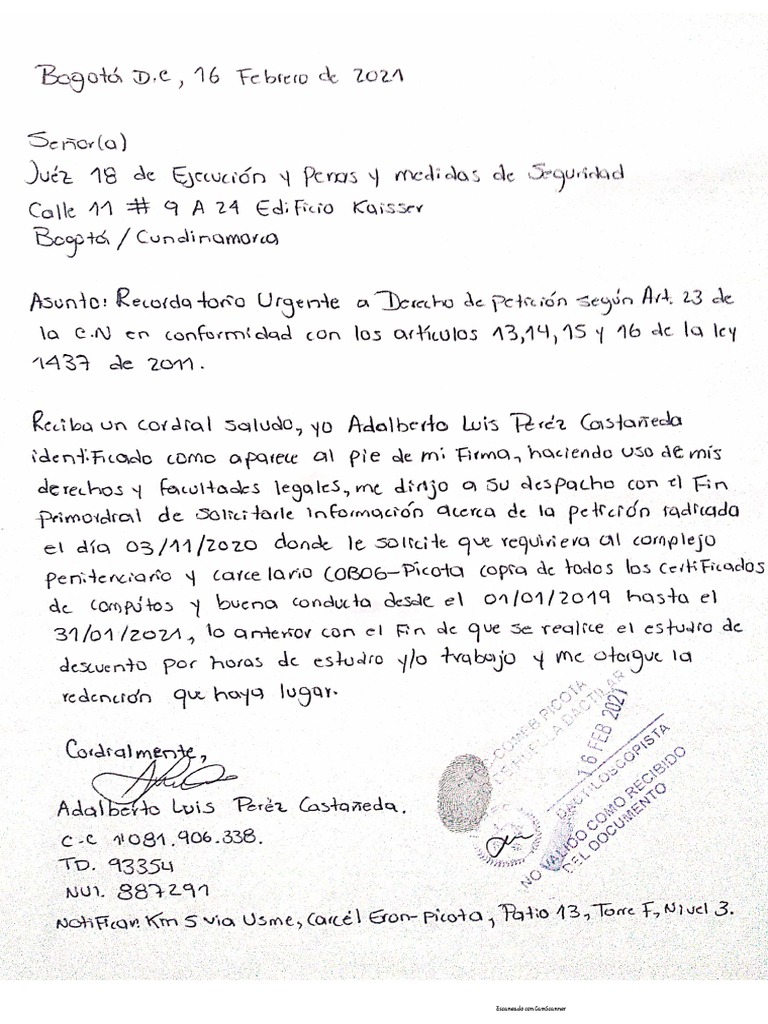 Bogotá D.C, 16 Febrero de 2021
Señor(a)
Juéz 18 de Ejecución y Penas y medidas de Seguridad
Calle 11 # 9 A 24 Edificio Kaisser
Bogotá / Cundinamarca
Asunto: Recordatorio Urgente a Derecho de petición según Art. 23 de
la C.N en conformidad con los artículos 13,14,15 y 16 de la ley
1437 de 2011.
Reciba un cordial saludo, yo Adalberto Luis Peréz Castañeda
identificado como aparece al pie de mi Firma, haciendo uso de mis
derechos y facultades legales, me dirijo a su despacho con el Fin
primordial de solicitarle información acerca de la petición radicada
el día 03/11/2020 donde le solicite que requiriera al complejo
penitenciario y carcelario COBOG-Picota copia de todos los certificados
de compútos y buena conducta desde el 01/01/2019 hasta el
31/01/2021, lo anterior con el Fin de que se realice el estudio de
descuento por horas de estudio y/o trabajo y me otorgue la
redención que haya lugar.
Cordialmente,
Adalberto Luis Peréz Castañeda.
C.C 1'081.906.338.
TD. 93354
NUI. 887291
Notificar: Km 5 via Usme, Carcél Eron-Picota, Patio 13, Torre F, Nivel 3.
COMEB PICOTA
DE HUELLA DACTILAR
16 FEB 2021
DACTILOSCOPISTA
NO VALIDO COMO RECIBIDO
DEL DOCUMENTO
Escaneado con CamScanner